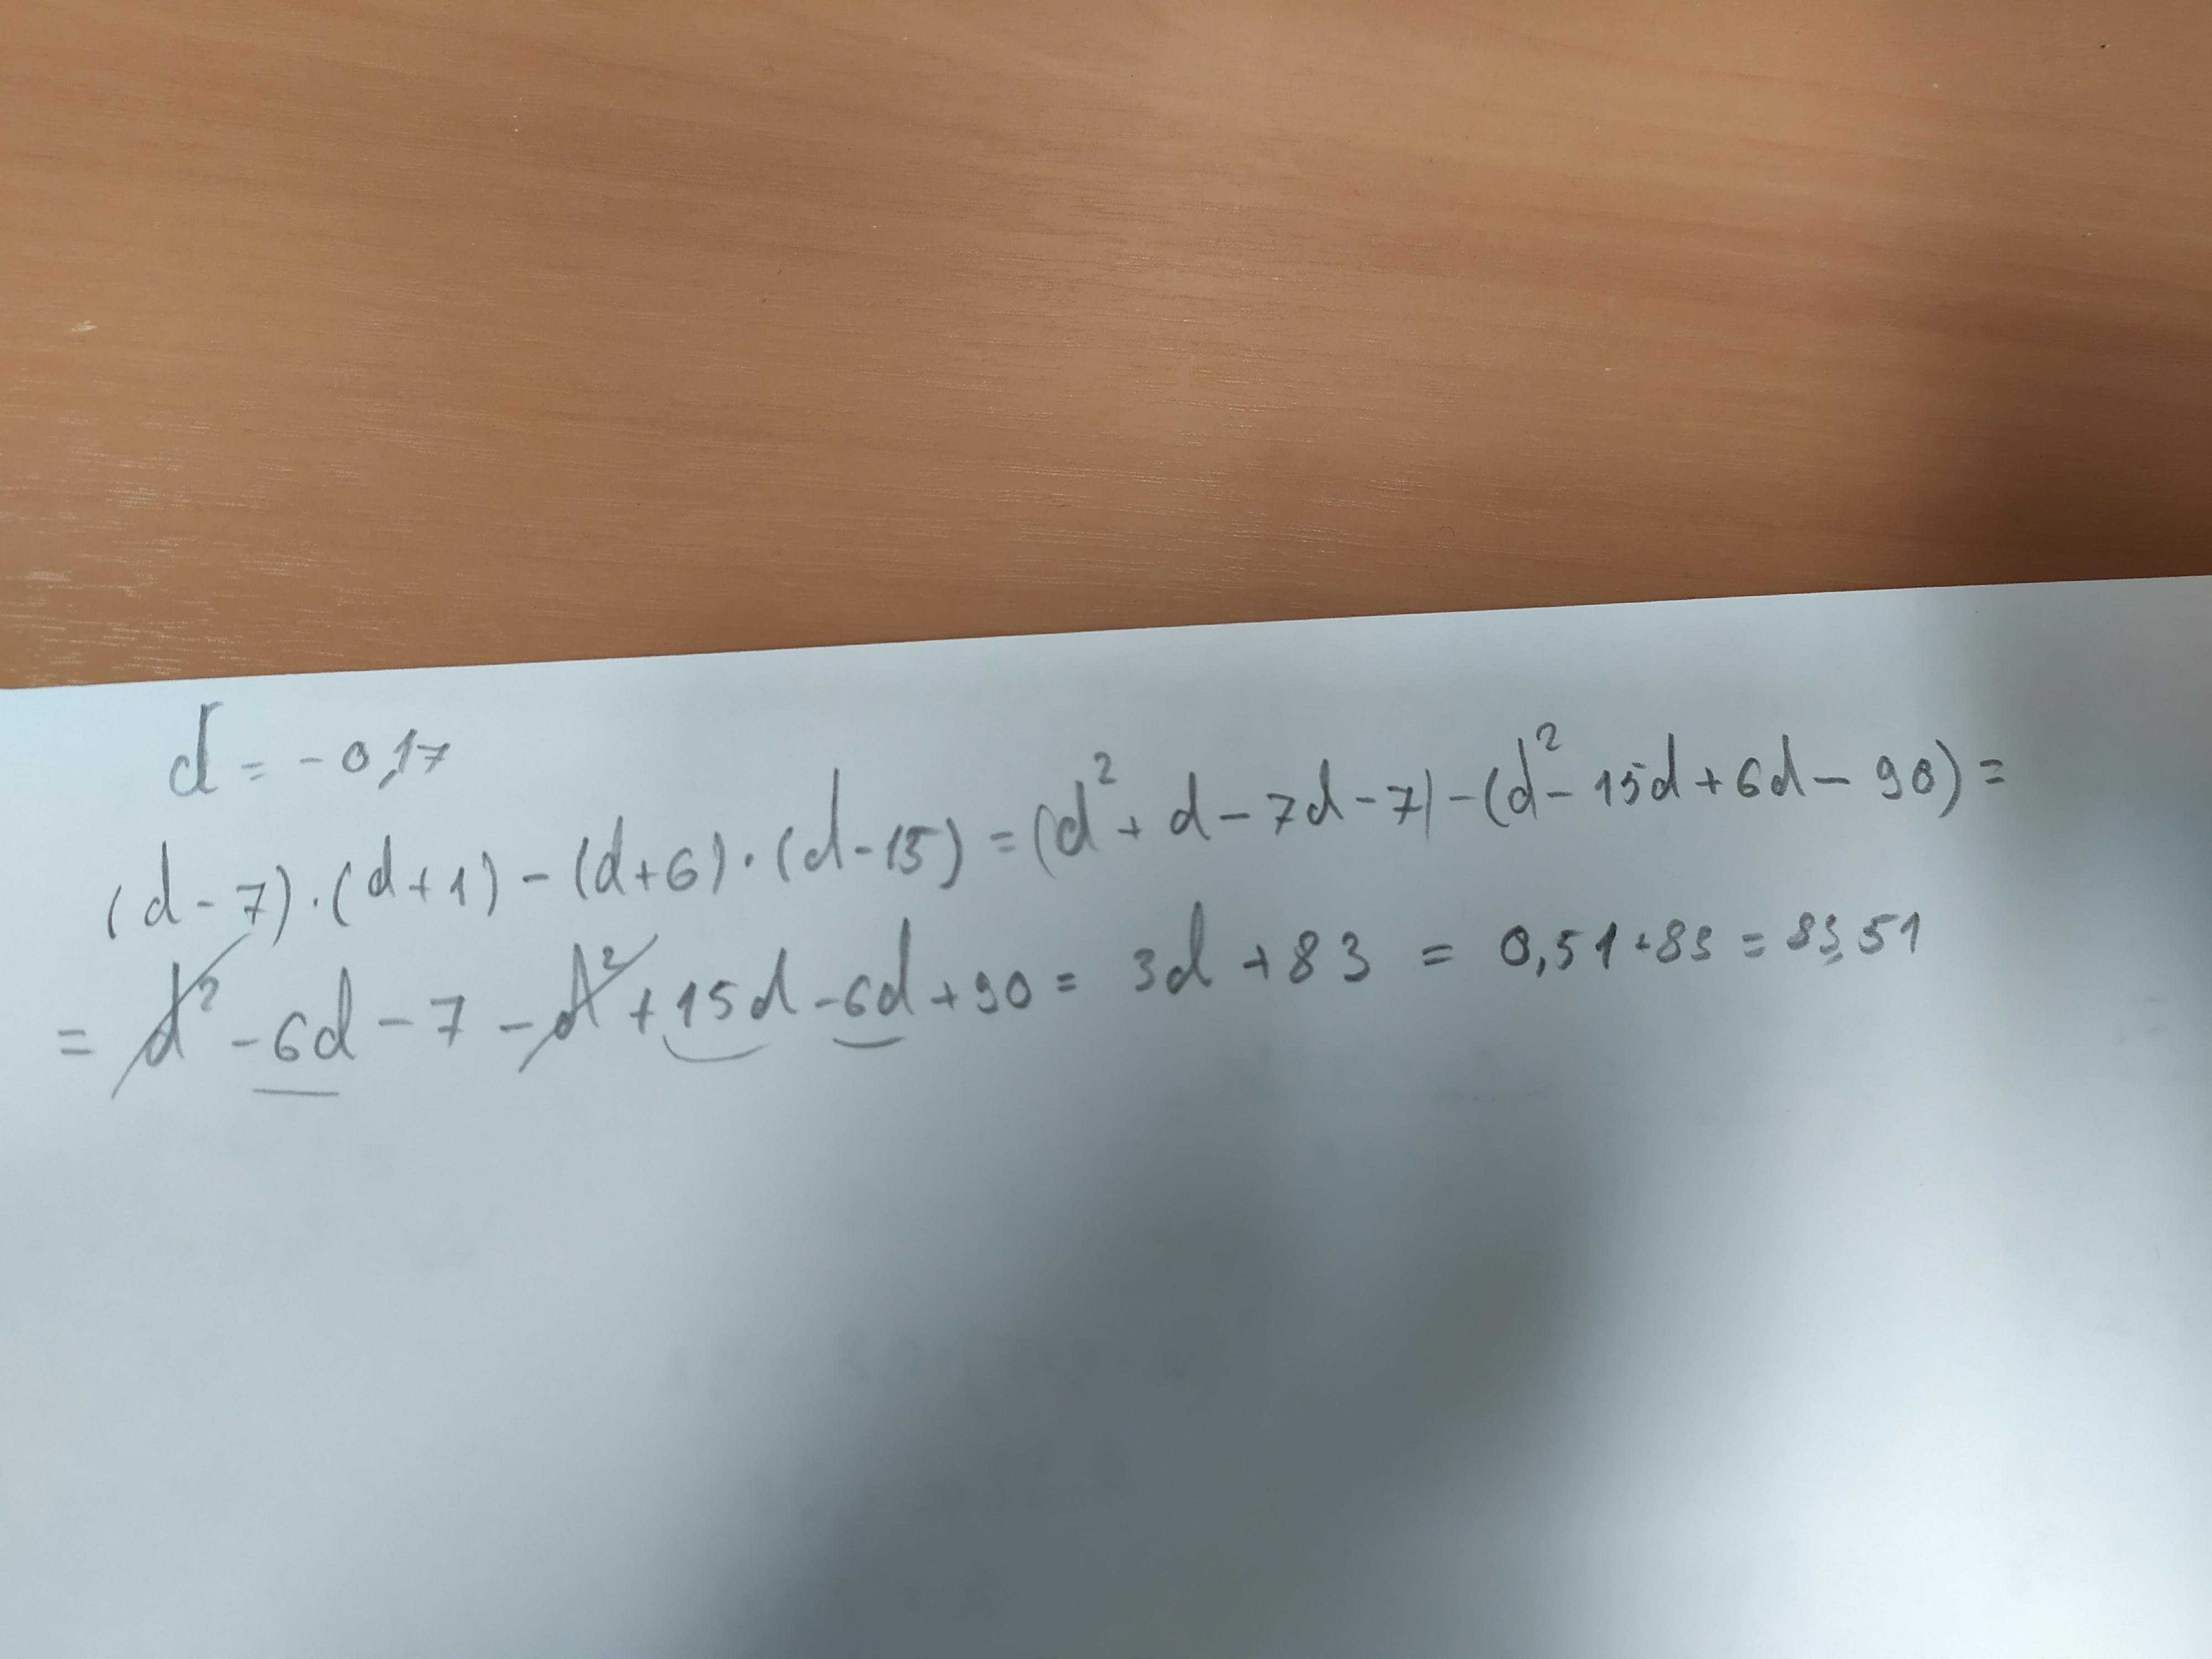 d = - 0,17
(d - 7) · (d + 1) - (d + 6) · (d - 15) = (d² + d - 7d - 7) - (d² - 15d + 6d - 90) =
= d² - 6d - 7 - d² + 15d - 6d + 90 = 3d + 83 = 0,51 + 83 = 83,51